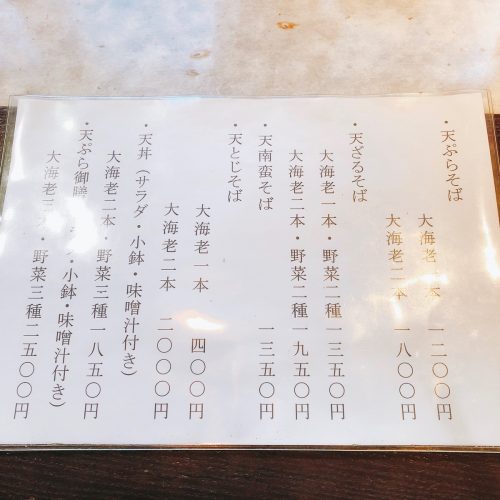 ・天ぷらそば
大海老 本 一二〇〇円
大海老二本 一八〇〇円
・天ざるそば
大海老一本・野菜二種一三五〇円
大海老二本・野菜二種一九五〇円
・天南蛮そば 一三五〇円
・天とじそば
大海老一本 四〇〇円
大海老二本 二〇〇〇円
・天丼(サラダ・小鉢・味噌汁付き)
大海老二本・野菜三種一八五〇円
・天ぷら御膳 ・小鉢・味噌汁付き)
大海老 ・野菜三種二五〇〇円